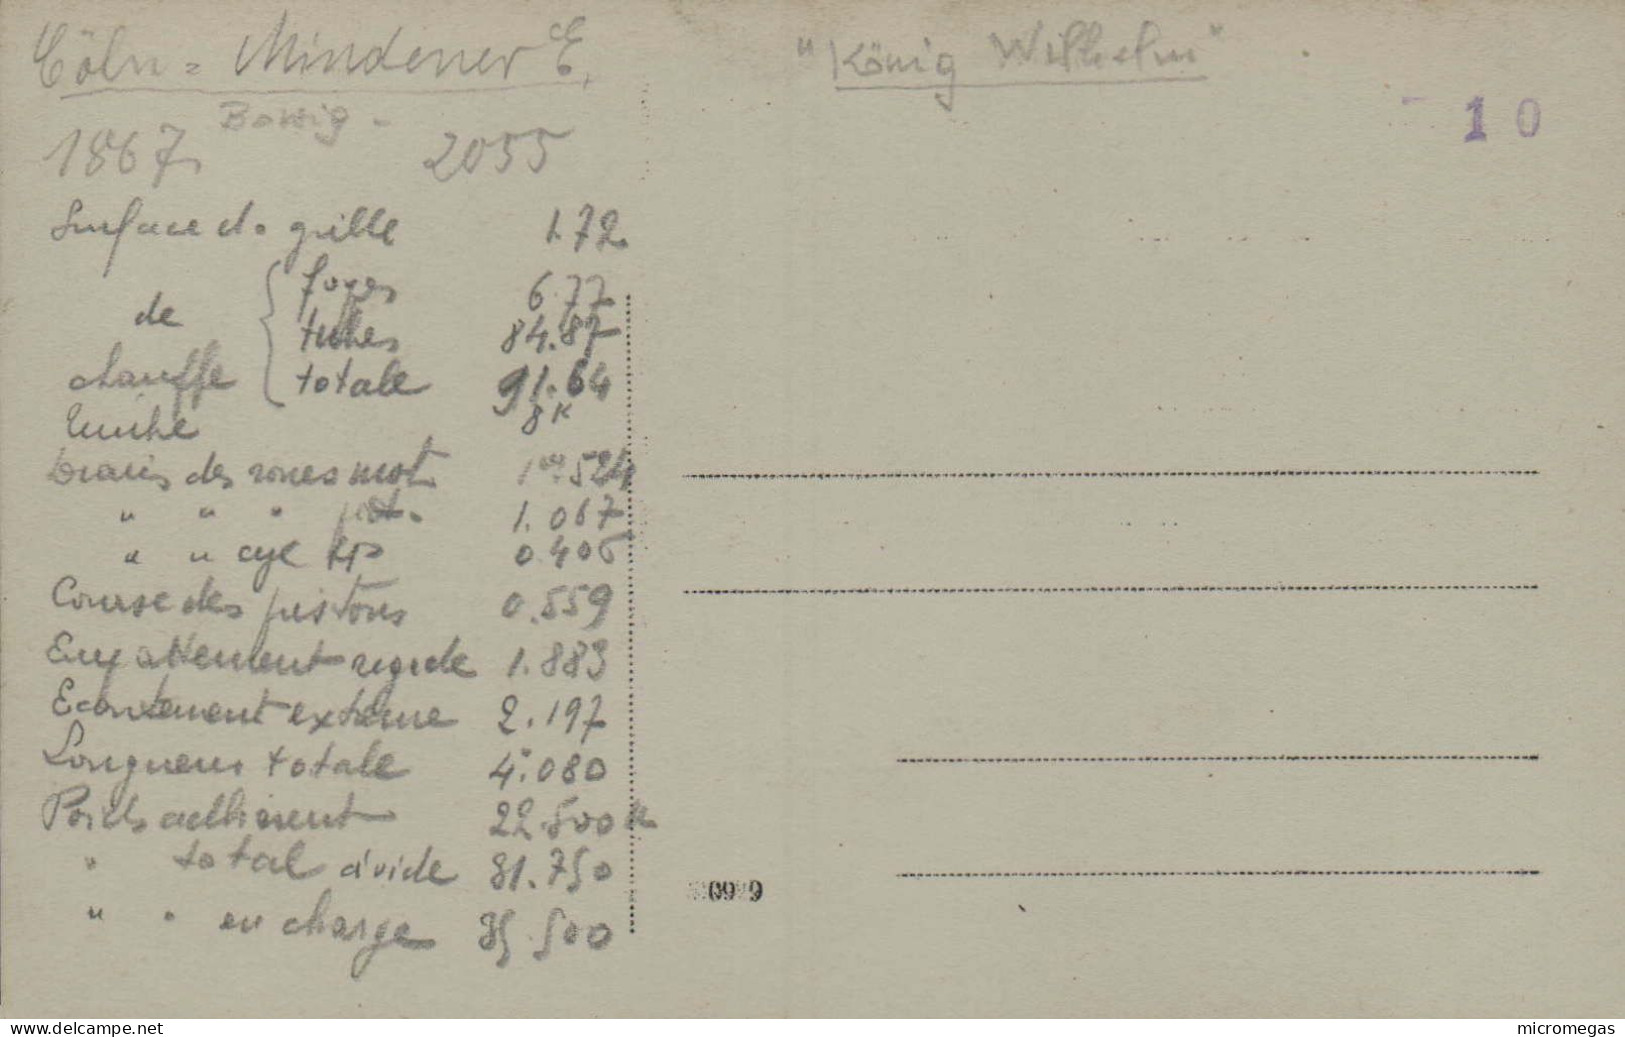 Cöln = Mindener E.
"König Wilhelm"
Borsig -
10
1867 2055
Surface de grille 1.72
de chauffe { foyer 6.77
tubes 84.87
totale 91.64
Timbre 8K
Diam des roues mot 1m.524
" " " port. 1.067
" " cyl HP 0.406
Course des pistons 0.559
Empattement rigide 1.883
Ecartement externe 2.197
Longueur totale 4m.080
Poids adhérent 22.500 K
" total à vide 31.750
" " en charge 35.500
delcampe.net
micromegas